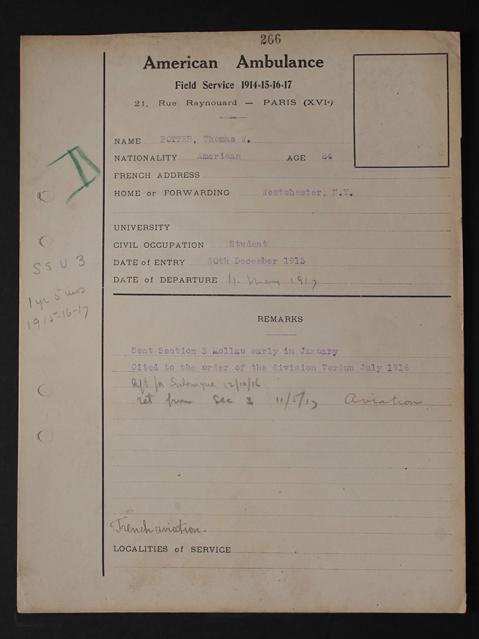 266
American Ambulance
Field Service 1914-15-16-17
21, Rue Raynouard — PARIS (XVIe)
NAME POTTER, Thomas W.
NATIONALITY American AGE 24
FRENCH ADDRESS
HOME or FORWARDING Westchester, N.Y.
UNIVERSITY
CIVIL OCCUPATION Student
DATE of ENTRY 30th December 1915
DATE of DEPARTURE 11 May 1917
SSU 3
1 yr 5 mos
1915-16-17
REMARKS
Sent Section 3 Mollau early in January
Cited to the order of the division Verdun July 1916
left for Salonique 12/10/16
ret from Sec 3 11/5/17 Aviation
French aviation
LOCALITIES of SERVICE